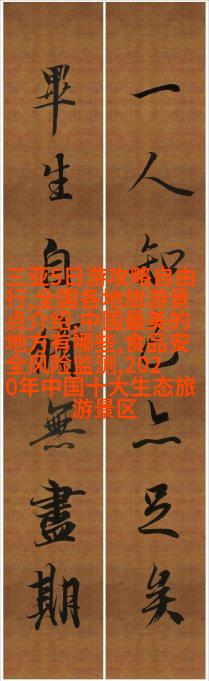 一人知己亦足矣
畢生自修無盡期
三亚5日游攻略自由
行,全国各地旅游景
点介绍,中国最美的
地方有哪些,食品安
全风险监测,202
0年中国十大生态旅
游景区